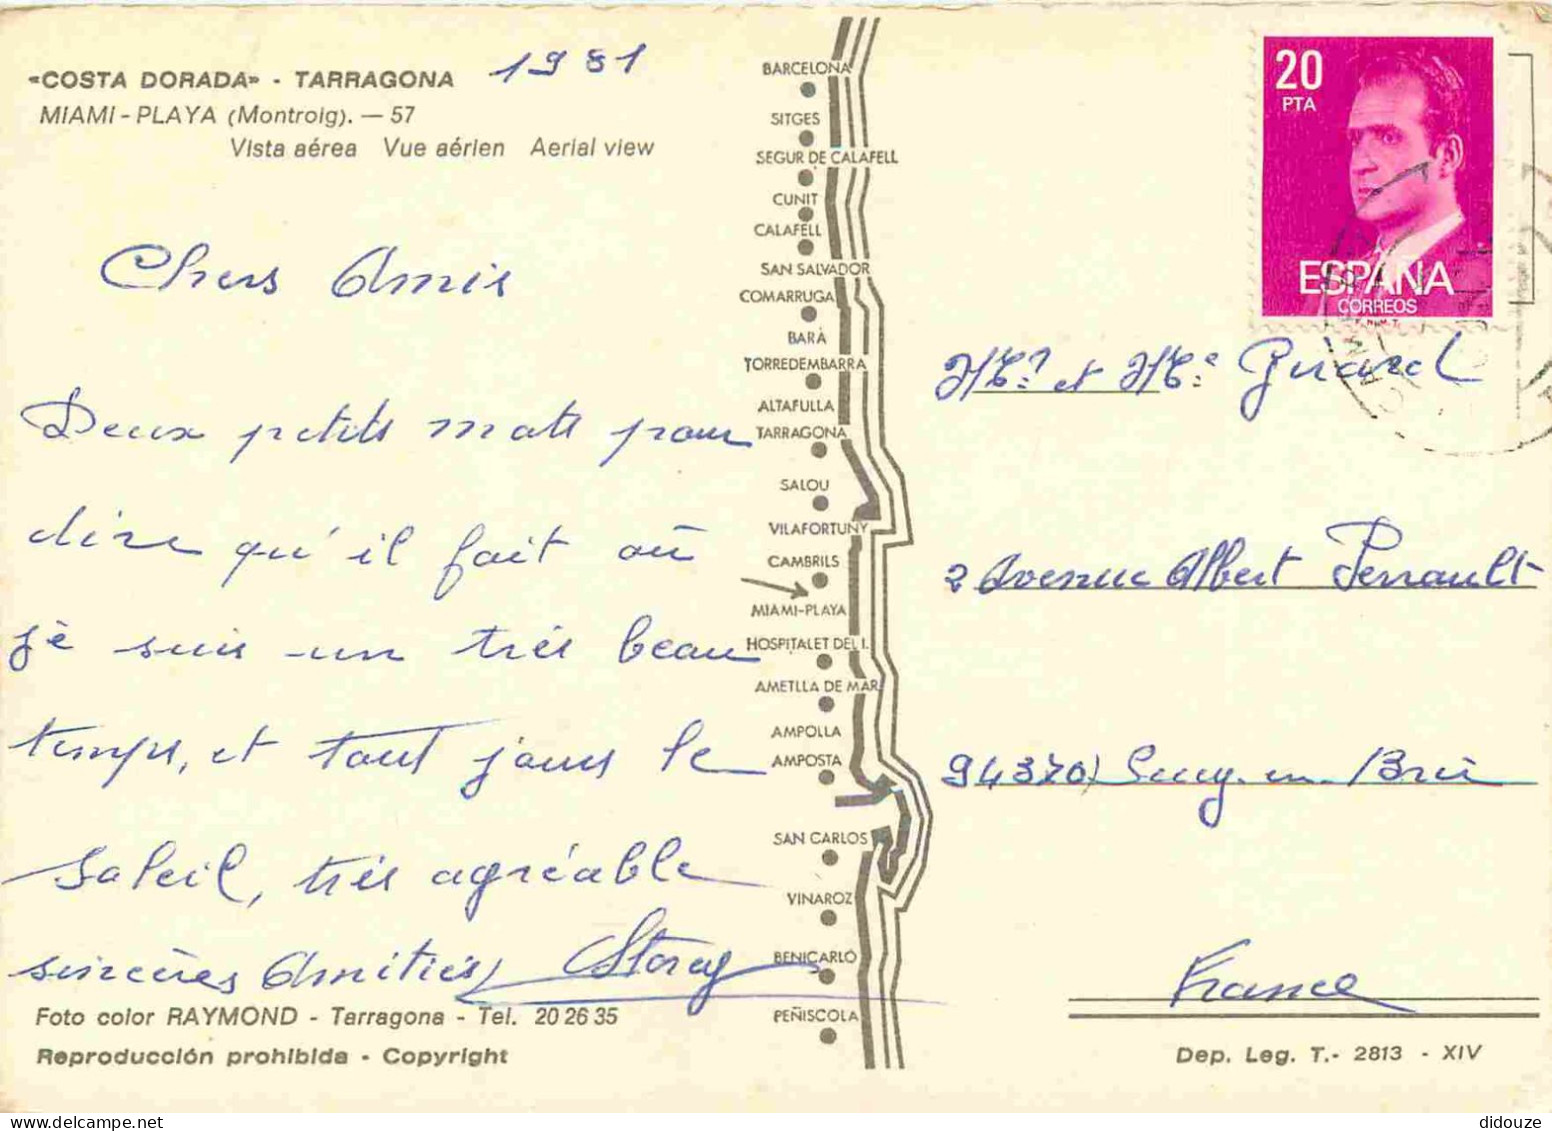 «COSTA DORADA» - TARRAGONA 1981
MIAMI-PLAYA (Montroig). — 57
Vista aérea Vue aérien Aerial view
Chers Amis
Deux petits mots pour
dire qu'il fait où
je suis un très beau
temps, et toujours le
soleil, très agréable
sincères Amitiés
Foto color RAYMOND - Tarragona - Tel. 20 26 35
Reproducción prohibida - Copyright
BARCELONA
SITGES
SEGUR DE CALAFELL
CUNIT
CALAFELL
SAN SALVADOR
COMARRUGA
BARÀ
TORREDEMBARRA
ALTAFULLA
TARRAGONA
SALOU
VILAFORTUNY
CAMBRILS
MIAMI-PLAYA
HOSPITALET DEL I.
AMETLLA DE MAR
AMPOLLA
AMPOSTA
SAN CARLOS
VINAROZ
BENICARLÓ
PEÑISCOLA
20
PTA
ESPAÑA
CORREOS
et
2 Avenue Albert Perrault
94370 Sucy-en-Brie
France
Dep. Leg. T.- 2813 - XIV
didouze